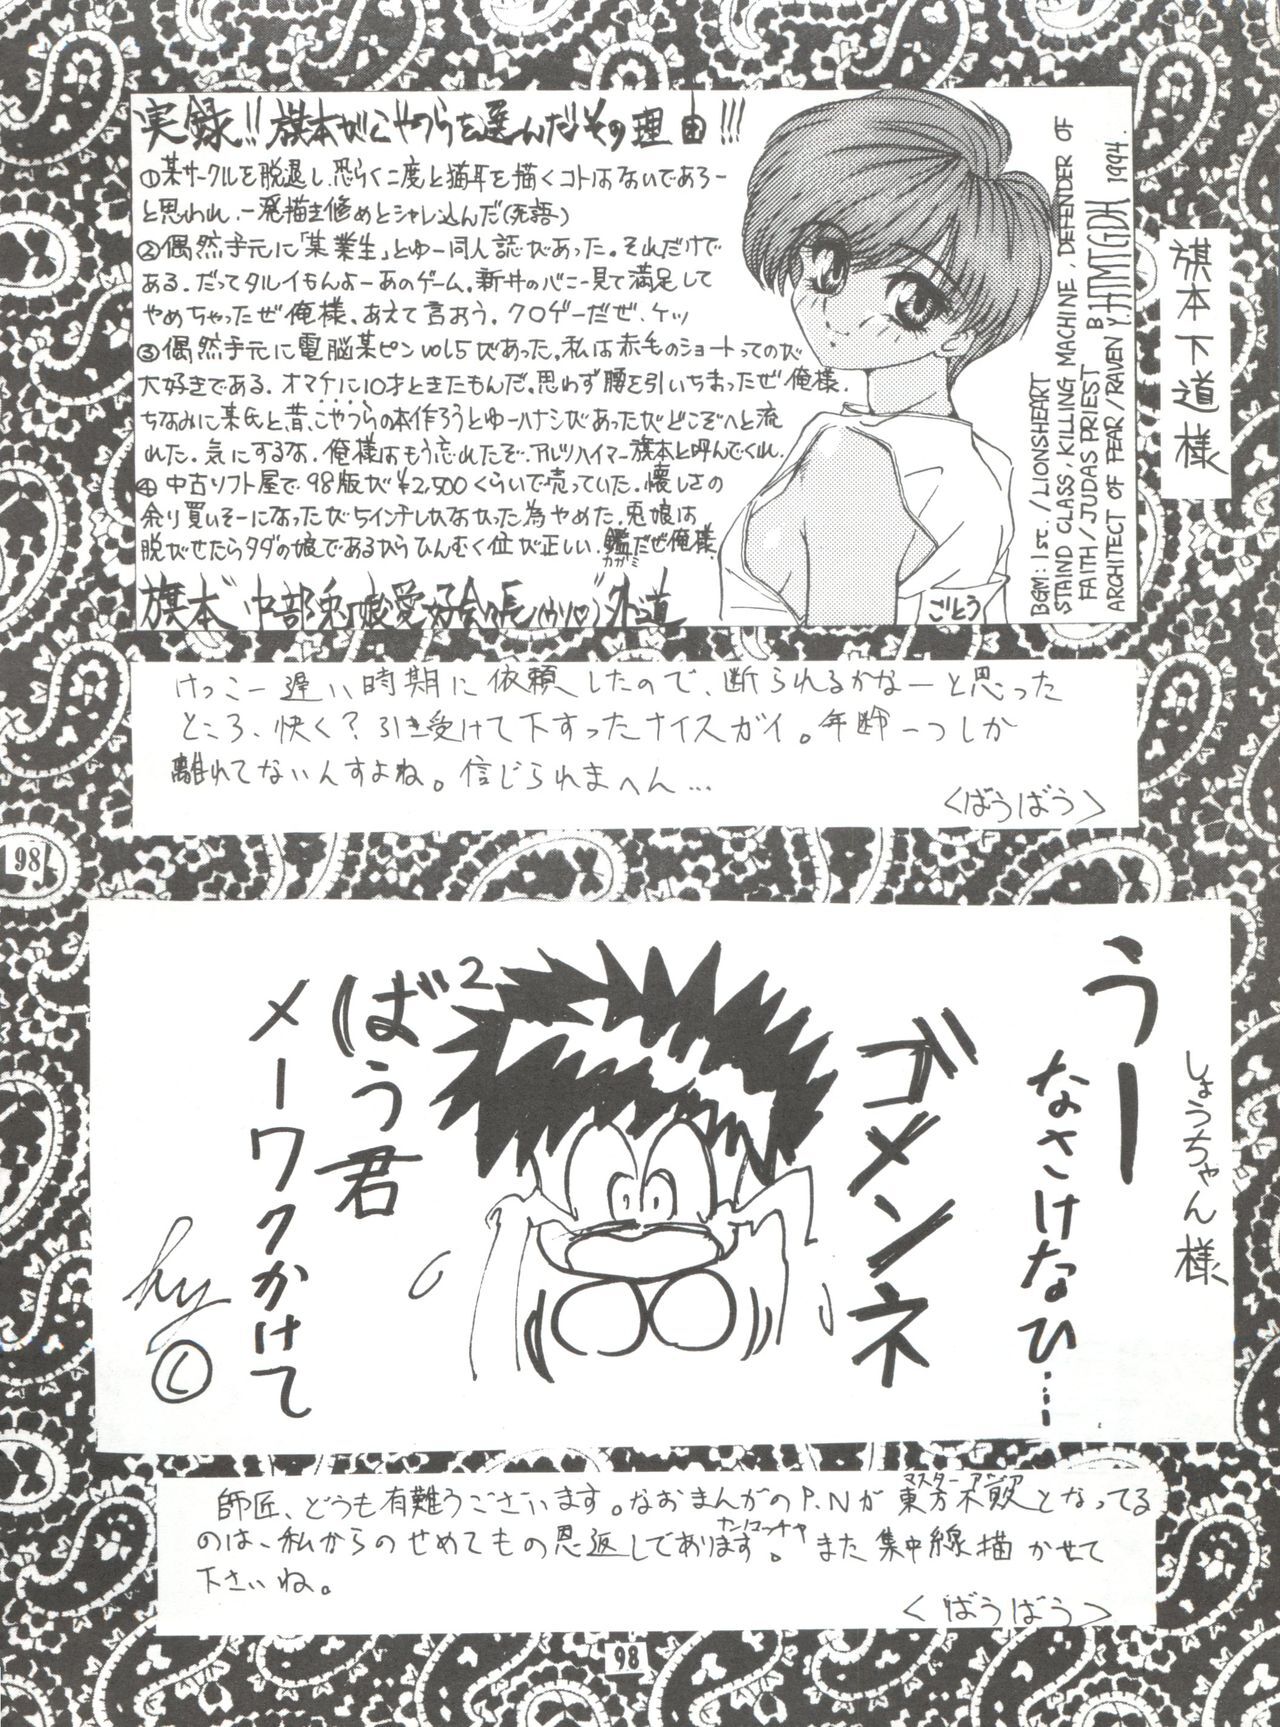 旗本下道様
実録!! 旗本がこやつらを選んだその理由!!!
①某サークルを脱退し、恐らく二度と猫耳を描くコトはないであろー
と思われ、一発描き修めとシャレ込んだ(死語)
②偶然手元に「某業生」とゆー同人誌があった。それだけで
ある。だってタルイもんよーあのゲーム。新井のバニー見て満足して
やめちゃったぜ俺様。あえて言おう。クロゲーだぜ、ケッ
③偶然手元に電脳某ピンvol5があった。私は赤毛のショートってのが
大好きである。オマケに10才ときたもんだ。思わず腰を引いちまったぜ俺様。
ちなみに某氏と昔、こやつらの本作ろうとゆーハナシがあったがどこぞへと流
れた。気にするな。俺様はもう忘れたぞ。アルツハイマー旗本と呼んでくれ。
④中古ソフト屋で98版が¥2,500くらいで売っていた。懐しさの
余り買いそーになったが5インチしかなかった為やめた。兎娘は
脱がせたらタダの娘であるからひんむく位が正しい。鑑だぜ俺様。
カガミ
旗本 中部兎娘愛好会々長(ウソ♡)外道
ごとう
BGM: 1st. / LIONSHEART
STAIND CLASS, KILLING MACHINE, DEFENDER OF
FAITH / JUDAS PRIEST
ARCHITECT OF FEAR / RAVEN
BY.HTMTGDH 1994.
けっこー遅い時期に依頼したので、断られるかなーと思った
ところ、快く?引き受けて下すったナイスガイ。年齢一つしか
離れてないんすよね。信じられまへん…
<ばうばう>
98
しょうちゃん様
うー
なさけなひ……
ゴメンネ
ばう²君
メーワクかけて
hy
師匠、どうも有難うございます。なおまんがのP.Nが東方不敗となってる
マスターアジア
のは、私からのせめてもの恩返しであります。ナンロッチャ また集中線描かせて
下さいね。
<ばうばう>
98